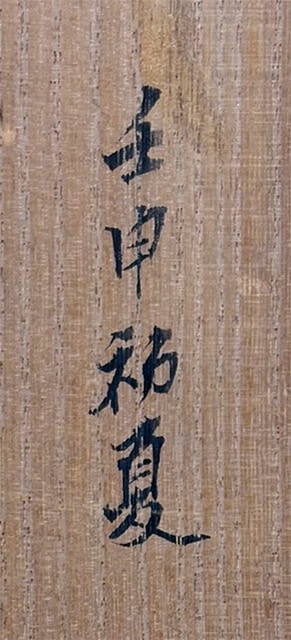 壬申初夏